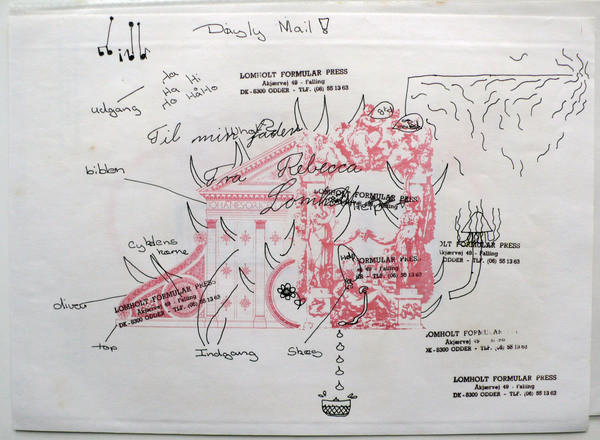 Dayly Mail!
Ha
Ha
Ho
Hi
Hå Ho
udgang
LOMHOLT FORMULAR PRESS
Åkjærvej 49 - Falling
DK-8300 ODDER - TLF. (06) 55 13 63
Til min
Fra Rebecca
Lomholt
bibben
LOMHOLT FORMULAR PRESS
Help
LOMHOLT FORMULAR PRESS
Åkjærvej 49 - Falling
DK-8300 ODDER - TLF. (06) 55 13 63
FORMULAR PRESS
49 - Falling
ODDER - TLF. (06) 55 13 63
horne
LOMHOLT FORMULAR PRESS
Åkjærvej 49 - Falling
DK-8300 ODDER - TLF. (06) 55 13 63
top
Indgang
LOMHOLT FORMULAR
Åkjærvej 49
DK-8300 ODDER - TLF. (06) 55 13 63
LOMHOLT FORMULAR PRESS
Åkjærvej 49 - Falling
DK-8300 ODDER - TLF. (06) 55 13 63